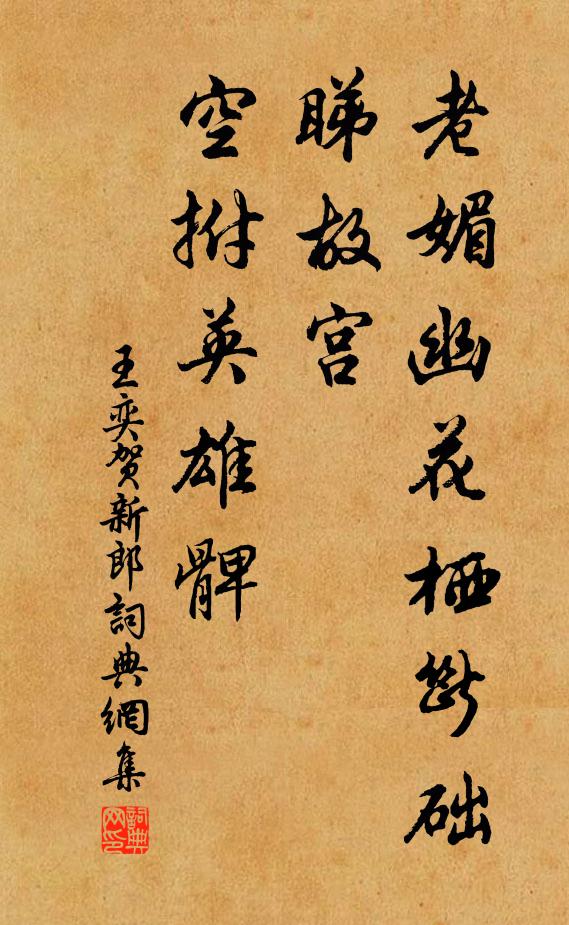 老媚幽花栖斷础
睇故宫
空拊英雄髀
王奕贺新郎詞典網集
詞典网印